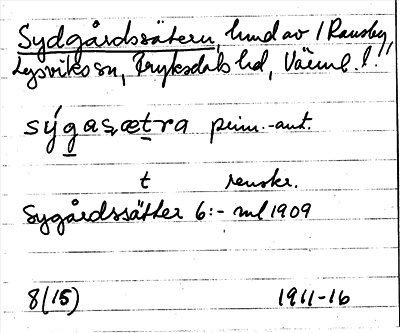 Sydgårdssätern, hmd av 1 Ransby,
Lysviks sn, Fryksdals hd, Värml. l.
sýgas,ætra prim.-ant.
t renskr.
Sygårdssätter 6:- ml 1909
8(15) 1911-16